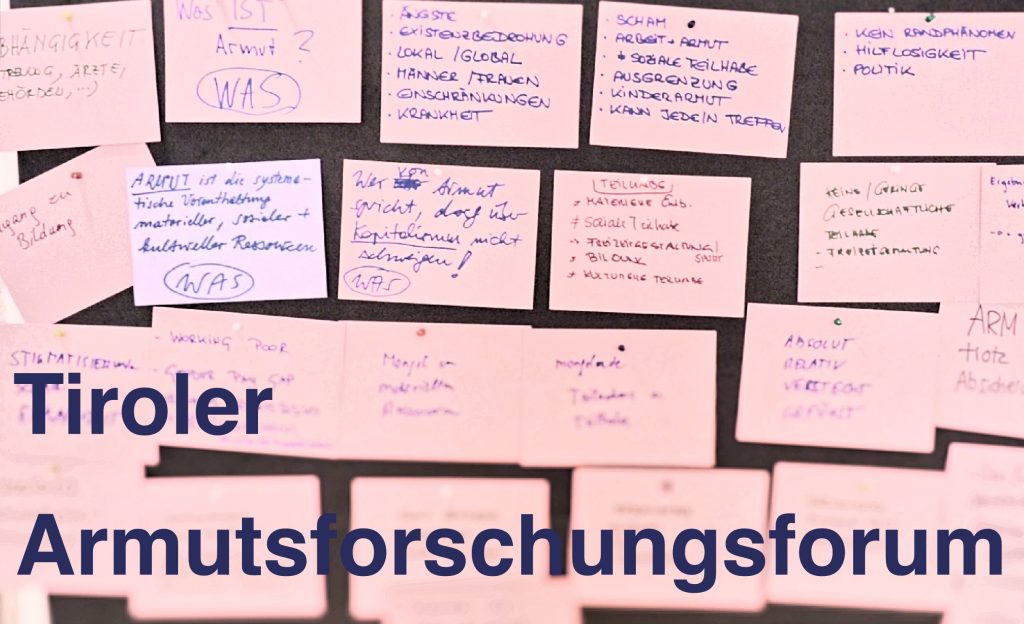 BHÄNGIGKEIT
ÄRZTE,
WAS IST
Armut?
WAS
• ÄNGSTE
• EXISTENZBEDROHUNG
• LOKAL / GLOBAL
• MÄNNER / FRAUEN
• EINSCHRÄNKUNGEN
• KRANKHEIT
• SCHAM
• ARBEIT + ARMUT
* SOZIALE TEILHABE
• AUSGRENZUNG
• KINDERARMUT
• KANN JEDE/N TREFFEN
• KEIN RANDPHÄNOMEN
• HILFLOSIGKEIT
• POLITIK
ugang zu
Bildung
ARMUT ist die systema-
tische Vorenthaltung
materieller, sozialer +
kultureller Ressourcen
WAS
Wer von Armut
spricht, darf über
Kapitalismus nicht
schweigen!
WAS
TEILHABE
MATERIELLE
Soziale Teilhabe
FREIZEITGESTALTUNG /
SPORT
BILDUNG
KULTURELLE TEILHABE
KEINE / GERINGE
GESELLSCHAFTLICHE
TEILHABE
- FREIZEITGESTALTUNG
STIGMATISIERUNG
- WORKING POOR
- GENDER PAY GAP
Mangel an
materiellen
Ressourcen
mangelnde
Teilhabe
ABSOLUT
RELATIV
VERSTECKT
GEFÜHLT
ARM
trotz
Tiroler
Armutsforschungsforum